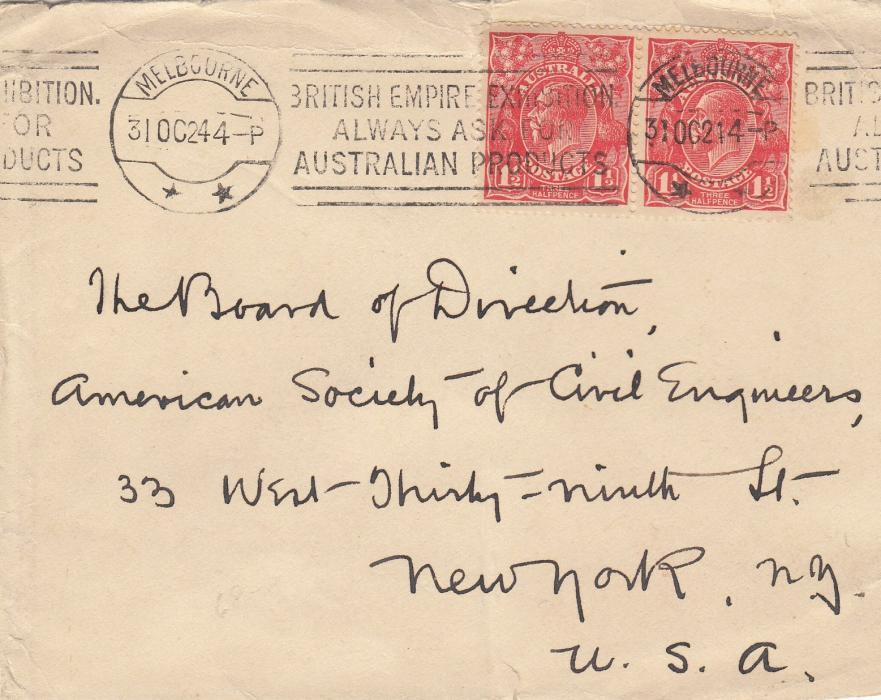 HIBITION.
FOR
DUCTS
MELBOURNE
31 OC 24 4-P
BRITISH EMPIRE EXHIBITION.
ALWAYS ASK FOR
AUSTRALIAN PRODUCTS
AUSTRALIA
POSTAGE
1½ 1½
HALFPENCE
MELBOURNE
31 OC 24 4-P
POSTAGE
1½ 1½
THREE
HALFPENCE
BRITIS
AL
AUST
The Board of Direction,
American Society of Civil Engineers,
33 West Thirty-ninth St.
New York, N.Y.
U.S.A.